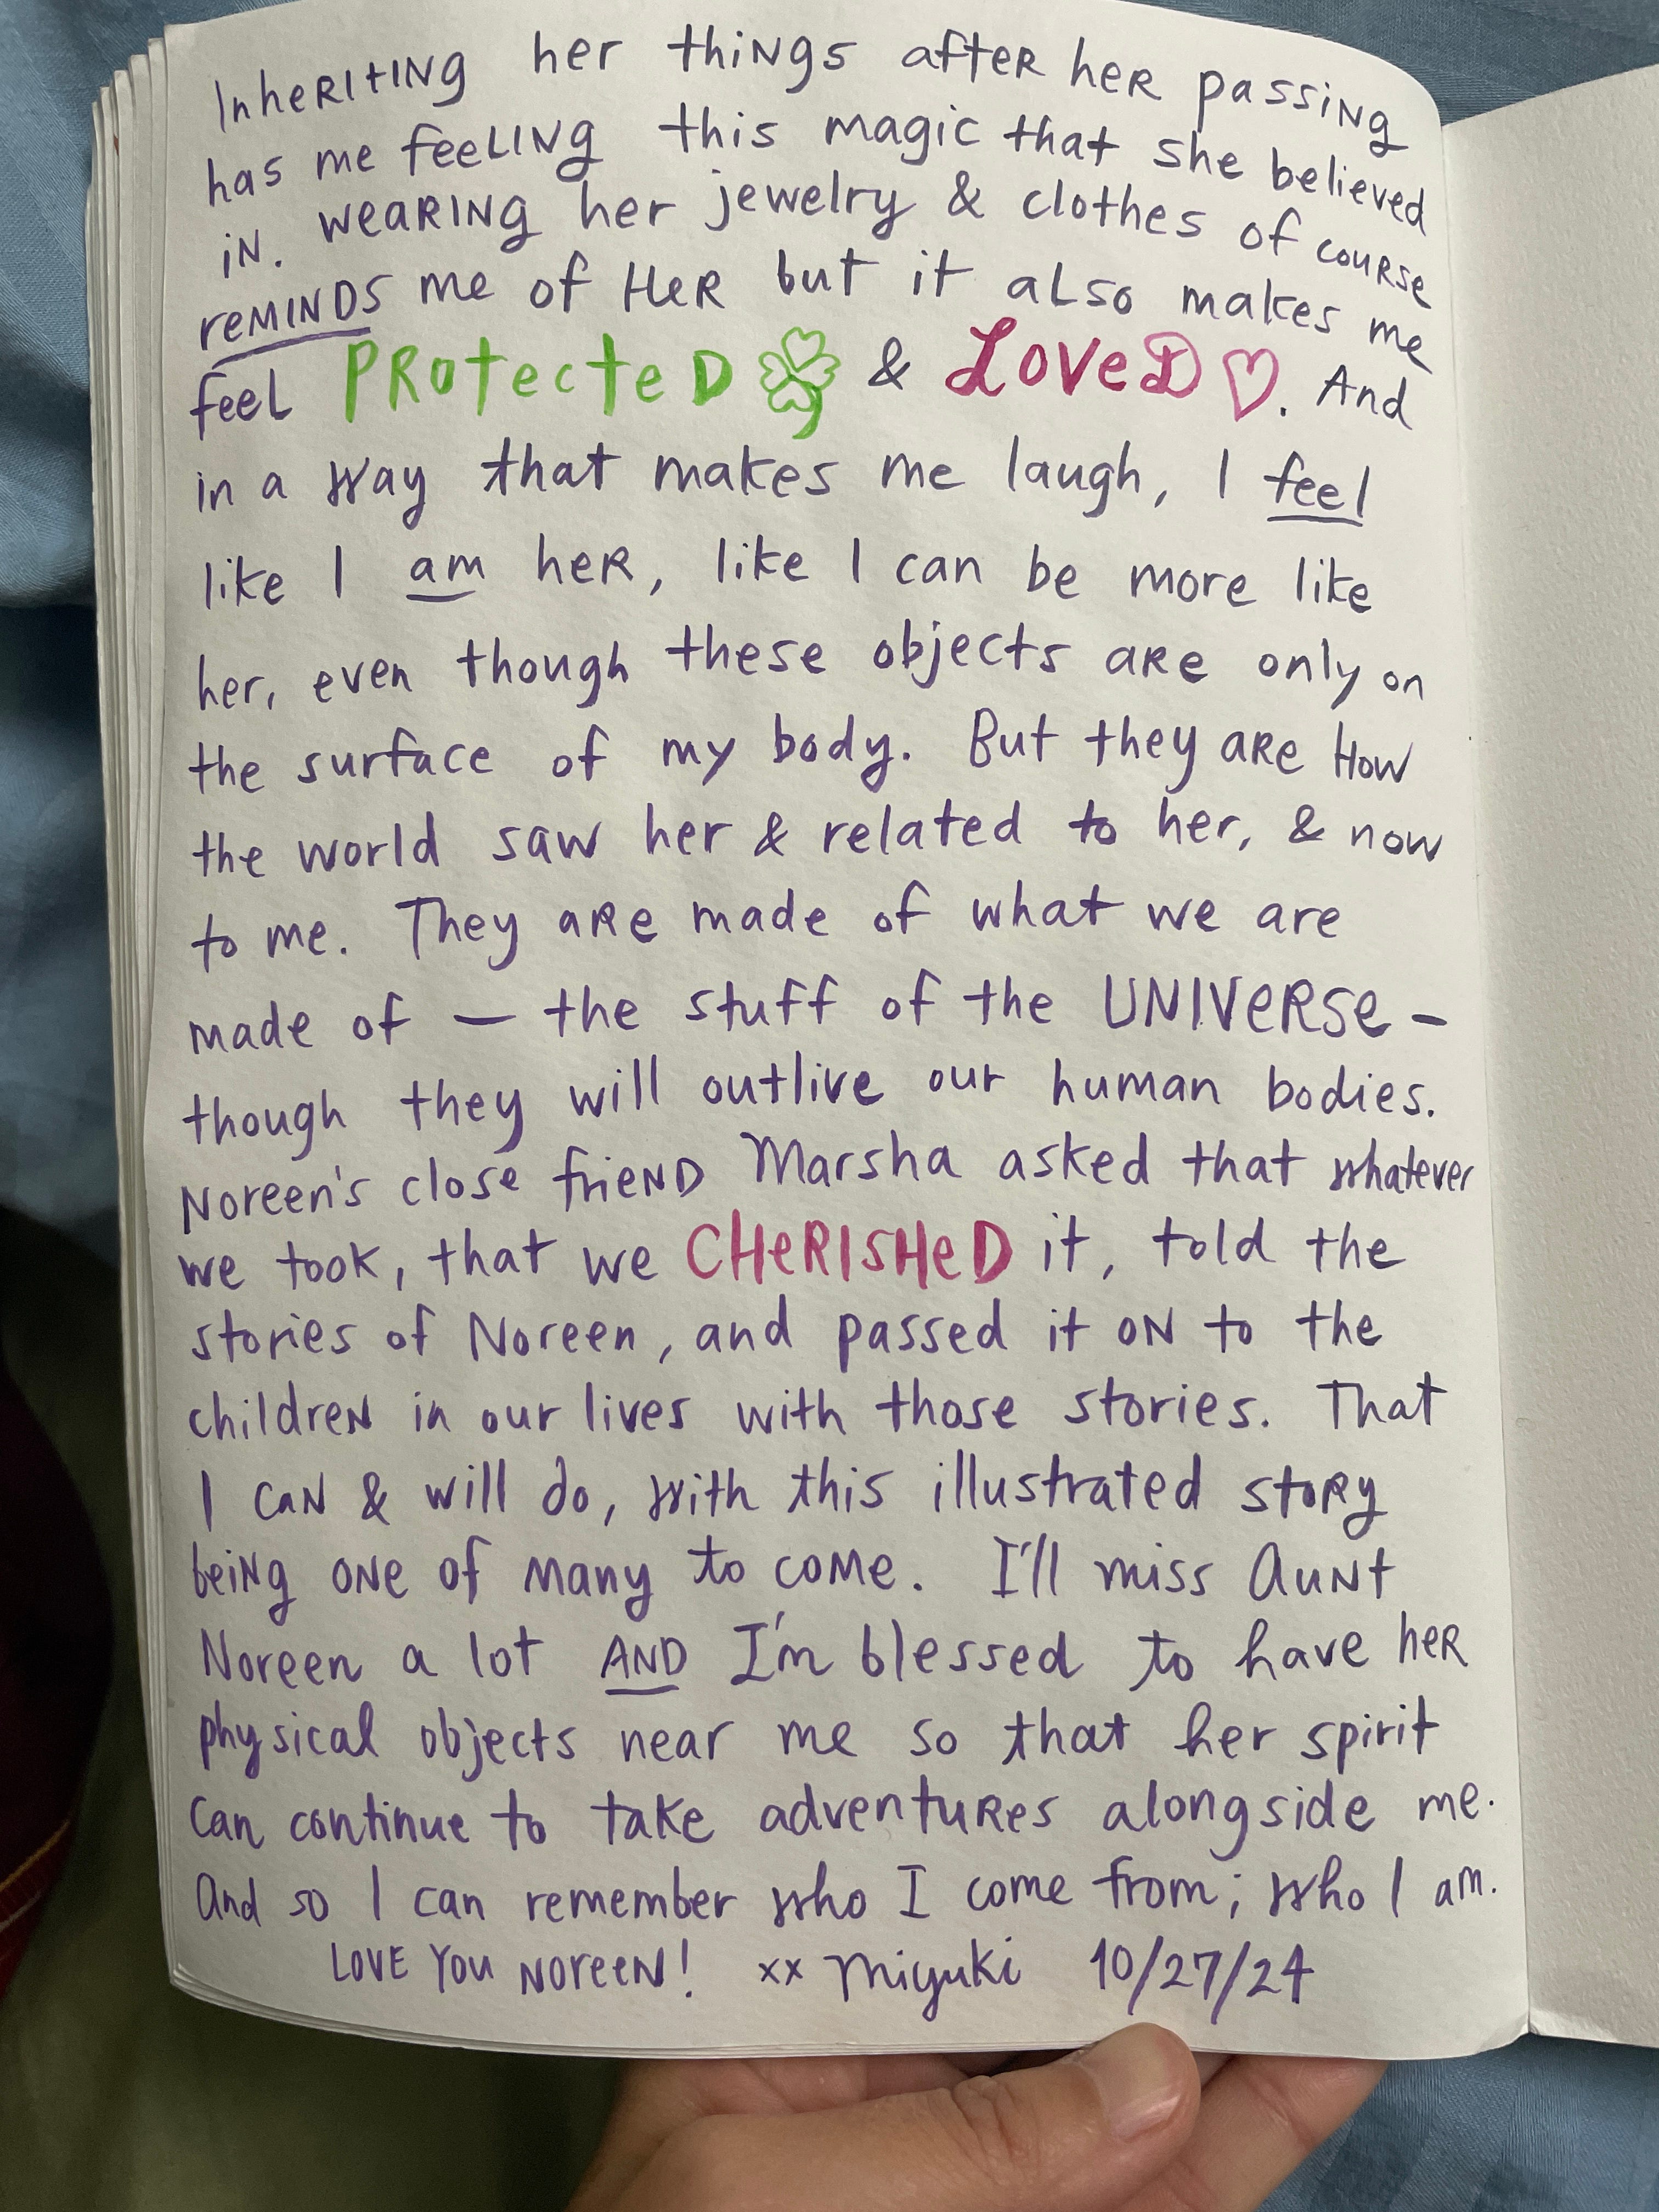 InheRITING her thiNgs afteR heR passiNg
has me feeLING this magic that she believed
iN. WeaRINg her jewelry & clothes of couRse
reMINDS me of HeR but it aLso makes me
feeL PRotecteD & LoveD ♡. And
in a way that makes me laugh, I feel
like I am heR, like I can be more like
her, even though these objects aRe only on
the surface of my body. But they aRe How
the world saw her & related to her, & now
to me. They aRe made of what we are
made of — the stuff of the UNIVeRSe -
though they will outlive our human bodies.
Noreen's close frieND Marsha asked that whatever
we took, that we CHeRISHeD it, told the
stories of Noreen, and passed it ON to the
childreN in our lives with those stories. That
I caN & will do, with this illustrated stoRy
beiNg oNe of many to coMe. I'll miss AuNt
Noreen a lot AND I'm blessed to have heR
physical objects near me so that her spirit
can continue to take adventuRes alongside me.
And so I can remember who I come from; who I am.
LOVE YOU NOReeN! xx Miyuki 10/27/24